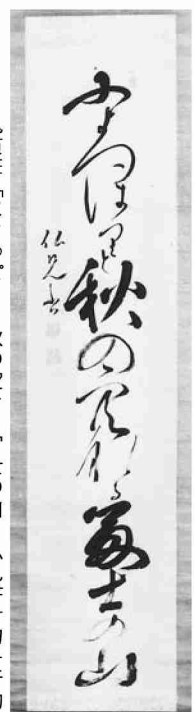 によつほりと秋の空なる富士の山
仏兄書